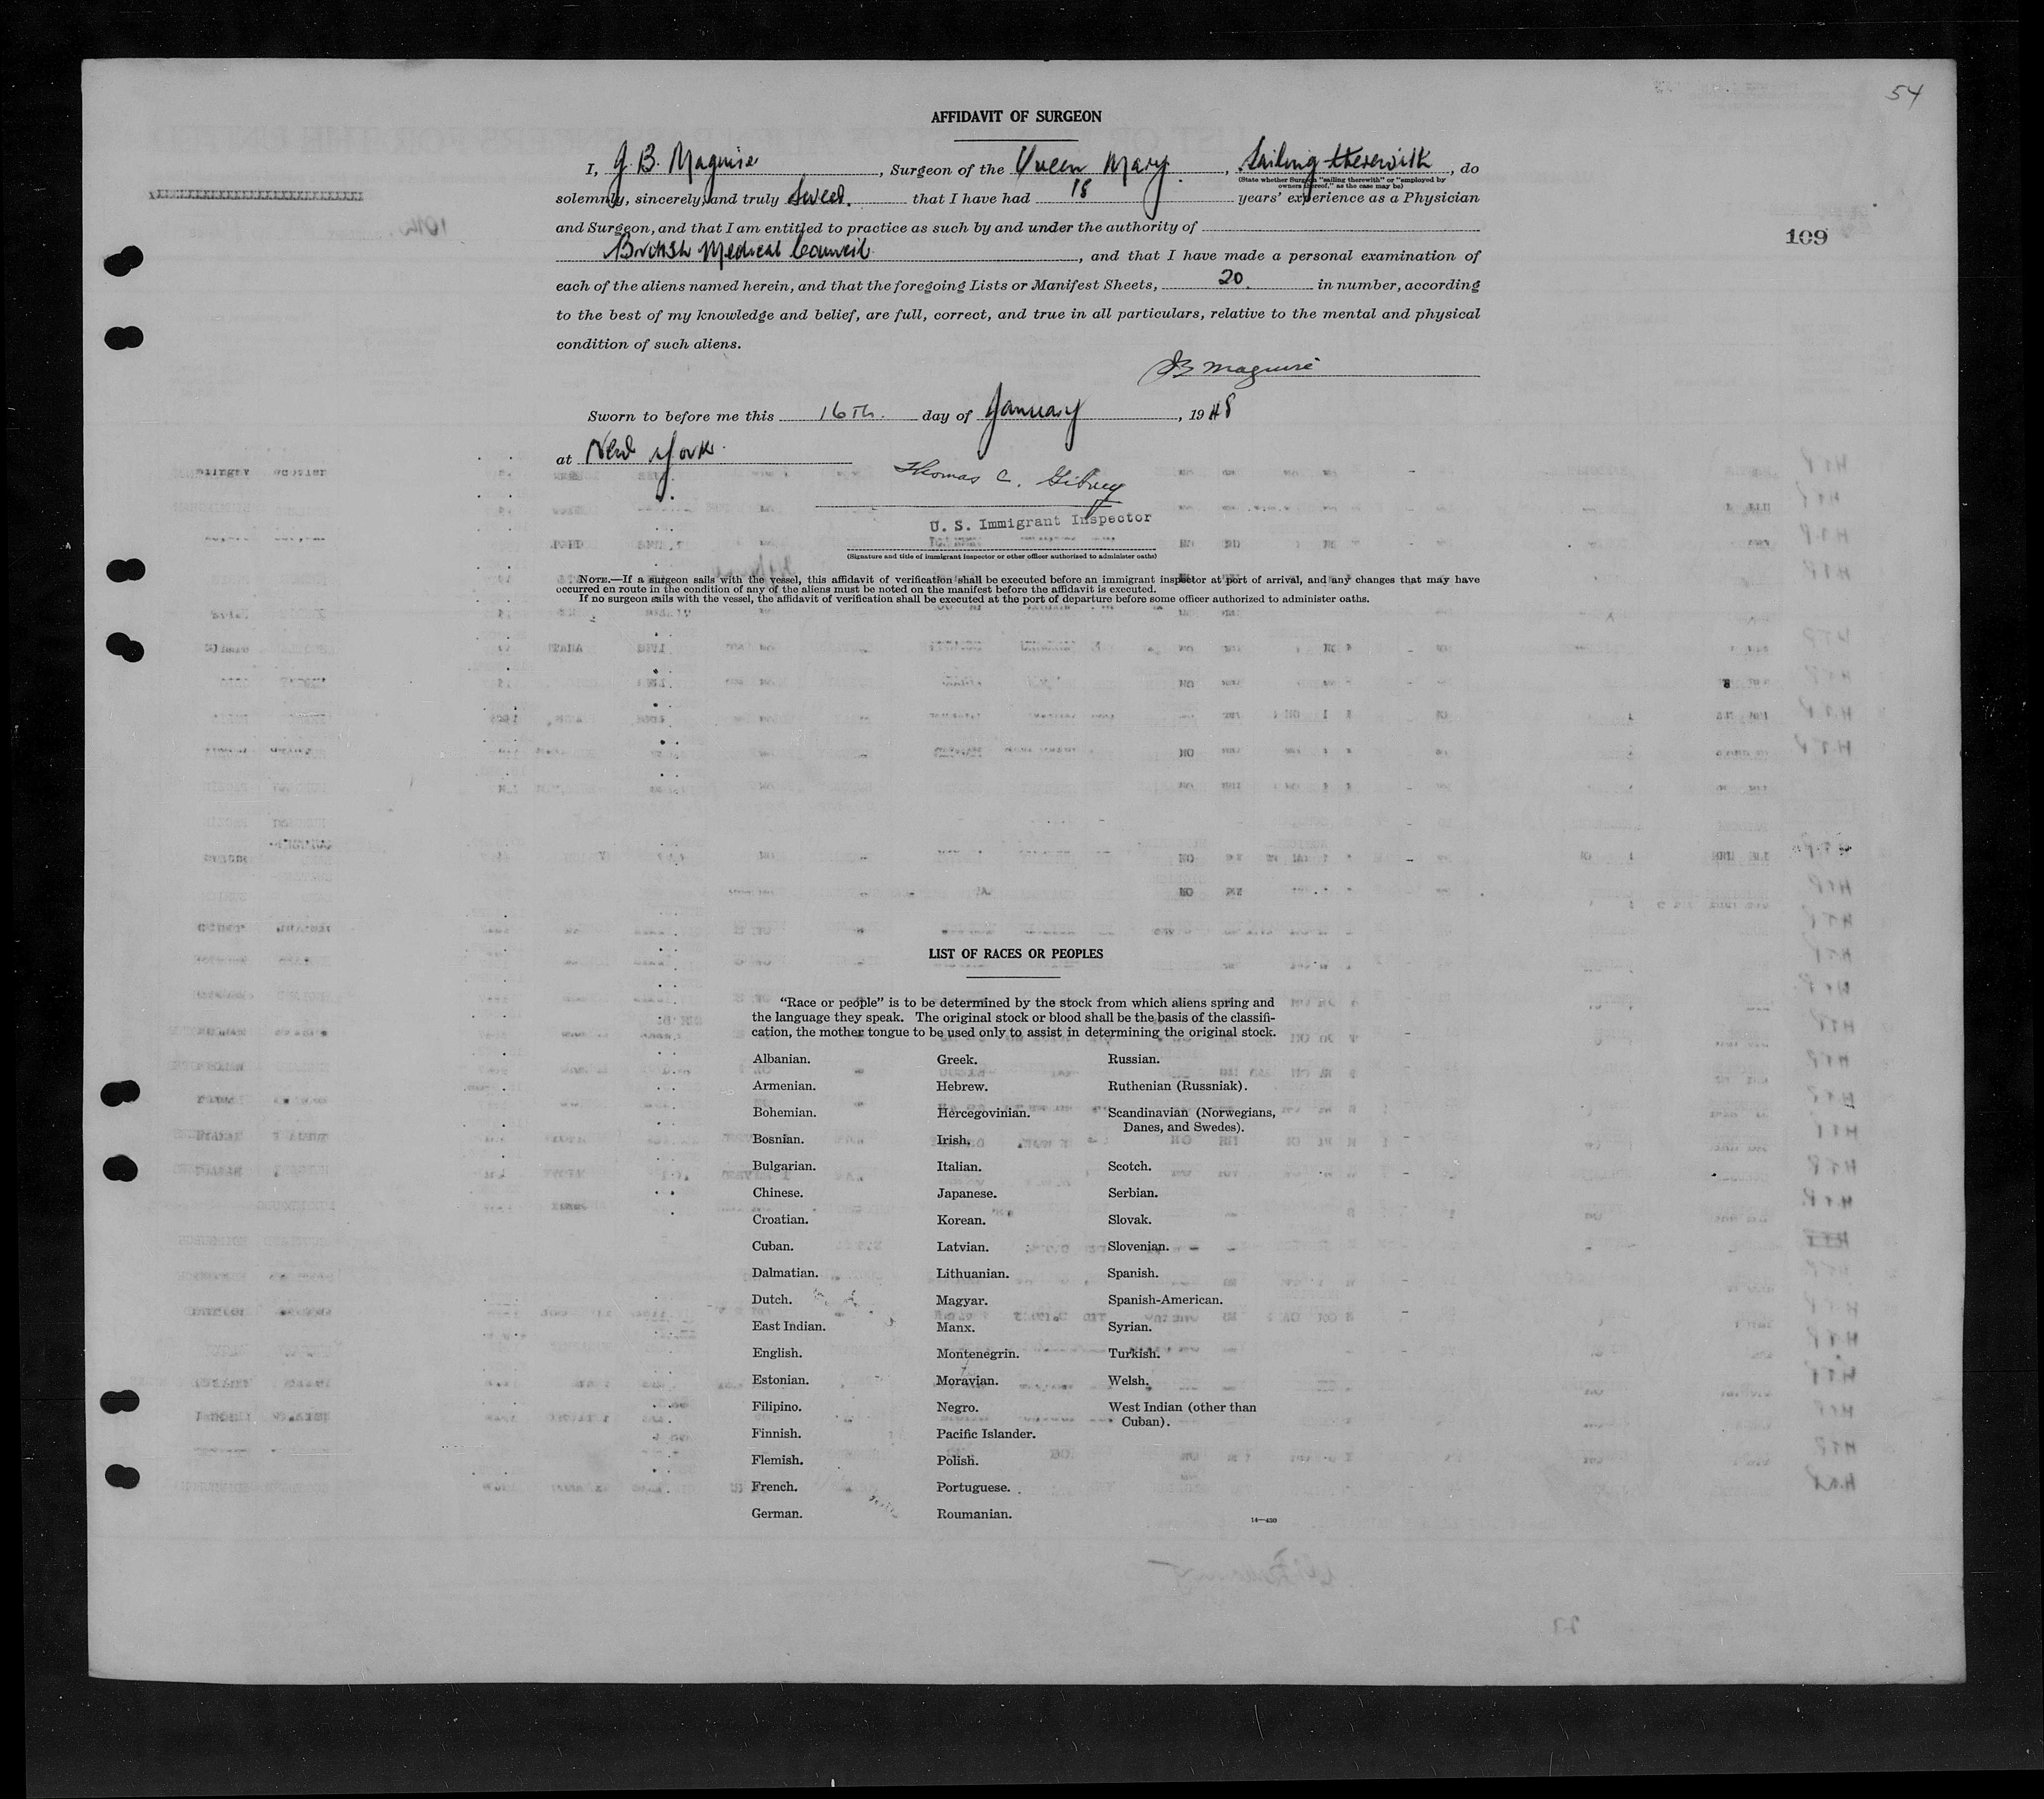 54
AFFIDAVIT OF SURGEON
I, J. B. Maguire, Surgeon of the Queen Mary, Sailing therewith, do
(State whether Surgeon "sailing therewith" or "employed by
owners thereof," as the case may be)
solemnly, sincerely, and truly Swear that I have had 18 years' experience as a Physician
and Surgeon, and that I am entitled to practice as such by and under the authority of
109
British Medical Council, and that I have made a personal examination of
each of the aliens named herein, and that the foregoing Lists or Manifest Sheets, 20 in number, according
to the best of my knowledge and belief, are full, correct, and true in all particulars, relative to the mental and physical
condition of such aliens.
JB Maguire
Sworn to before me this 16th. day of January, 1948
at New York
Thomas C. Gibney
U. S. Immigrant Inspector
(Signature and title of immigrant inspector or other officer authorized to administer oaths)
NOTE.—If a surgeon sails with the vessel, this affidavit of verification shall be executed before an immigrant inspector at port of arrival, and any changes that may have
occurred en route in the condition of any of the aliens must be noted on the manifest before the affidavit is executed.
If no surgeon sails with the vessel, the affidavit of verification shall be executed at the port of departure before some officer authorized to administer oaths.
LIST OF RACES OR PEOPLES
"Race or people" is to be determined by the stock from which aliens spring and
the language they speak. The original stock or blood shall be the basis of the classifi-
cation, the mother tongue to be used only to assist in determining the original stock.
Albanian.
Armenian.
Bohemian.
Bosnian.
Bulgarian.
Chinese.
Croatian.
Cuban.
Dalmatian.
Dutch.
East Indian.
English.
Estonian.
Filipino.
Finnish.
Flemish.
French.
German.
Greek.
Hebrew.
Hercegovinian.
Irish.
Italian.
Japanese.
Korean.
Latvian.
Lithuanian.
Magyar.
Manx.
Montenegrin.
Moravian.
Negro.
Pacific Islander.
Polish.
Portuguese.
Roumanian.
Russian.
Ruthenian (Russniak).
Scandinavian (Norwegians,
Danes, and Swedes).
Scotch.
Serbian.
Slovak.
Slovenian.
Spanish.
Spanish-American.
Syrian.
Turkish.
Welsh.
West Indian (other than
Cuban).
14—430